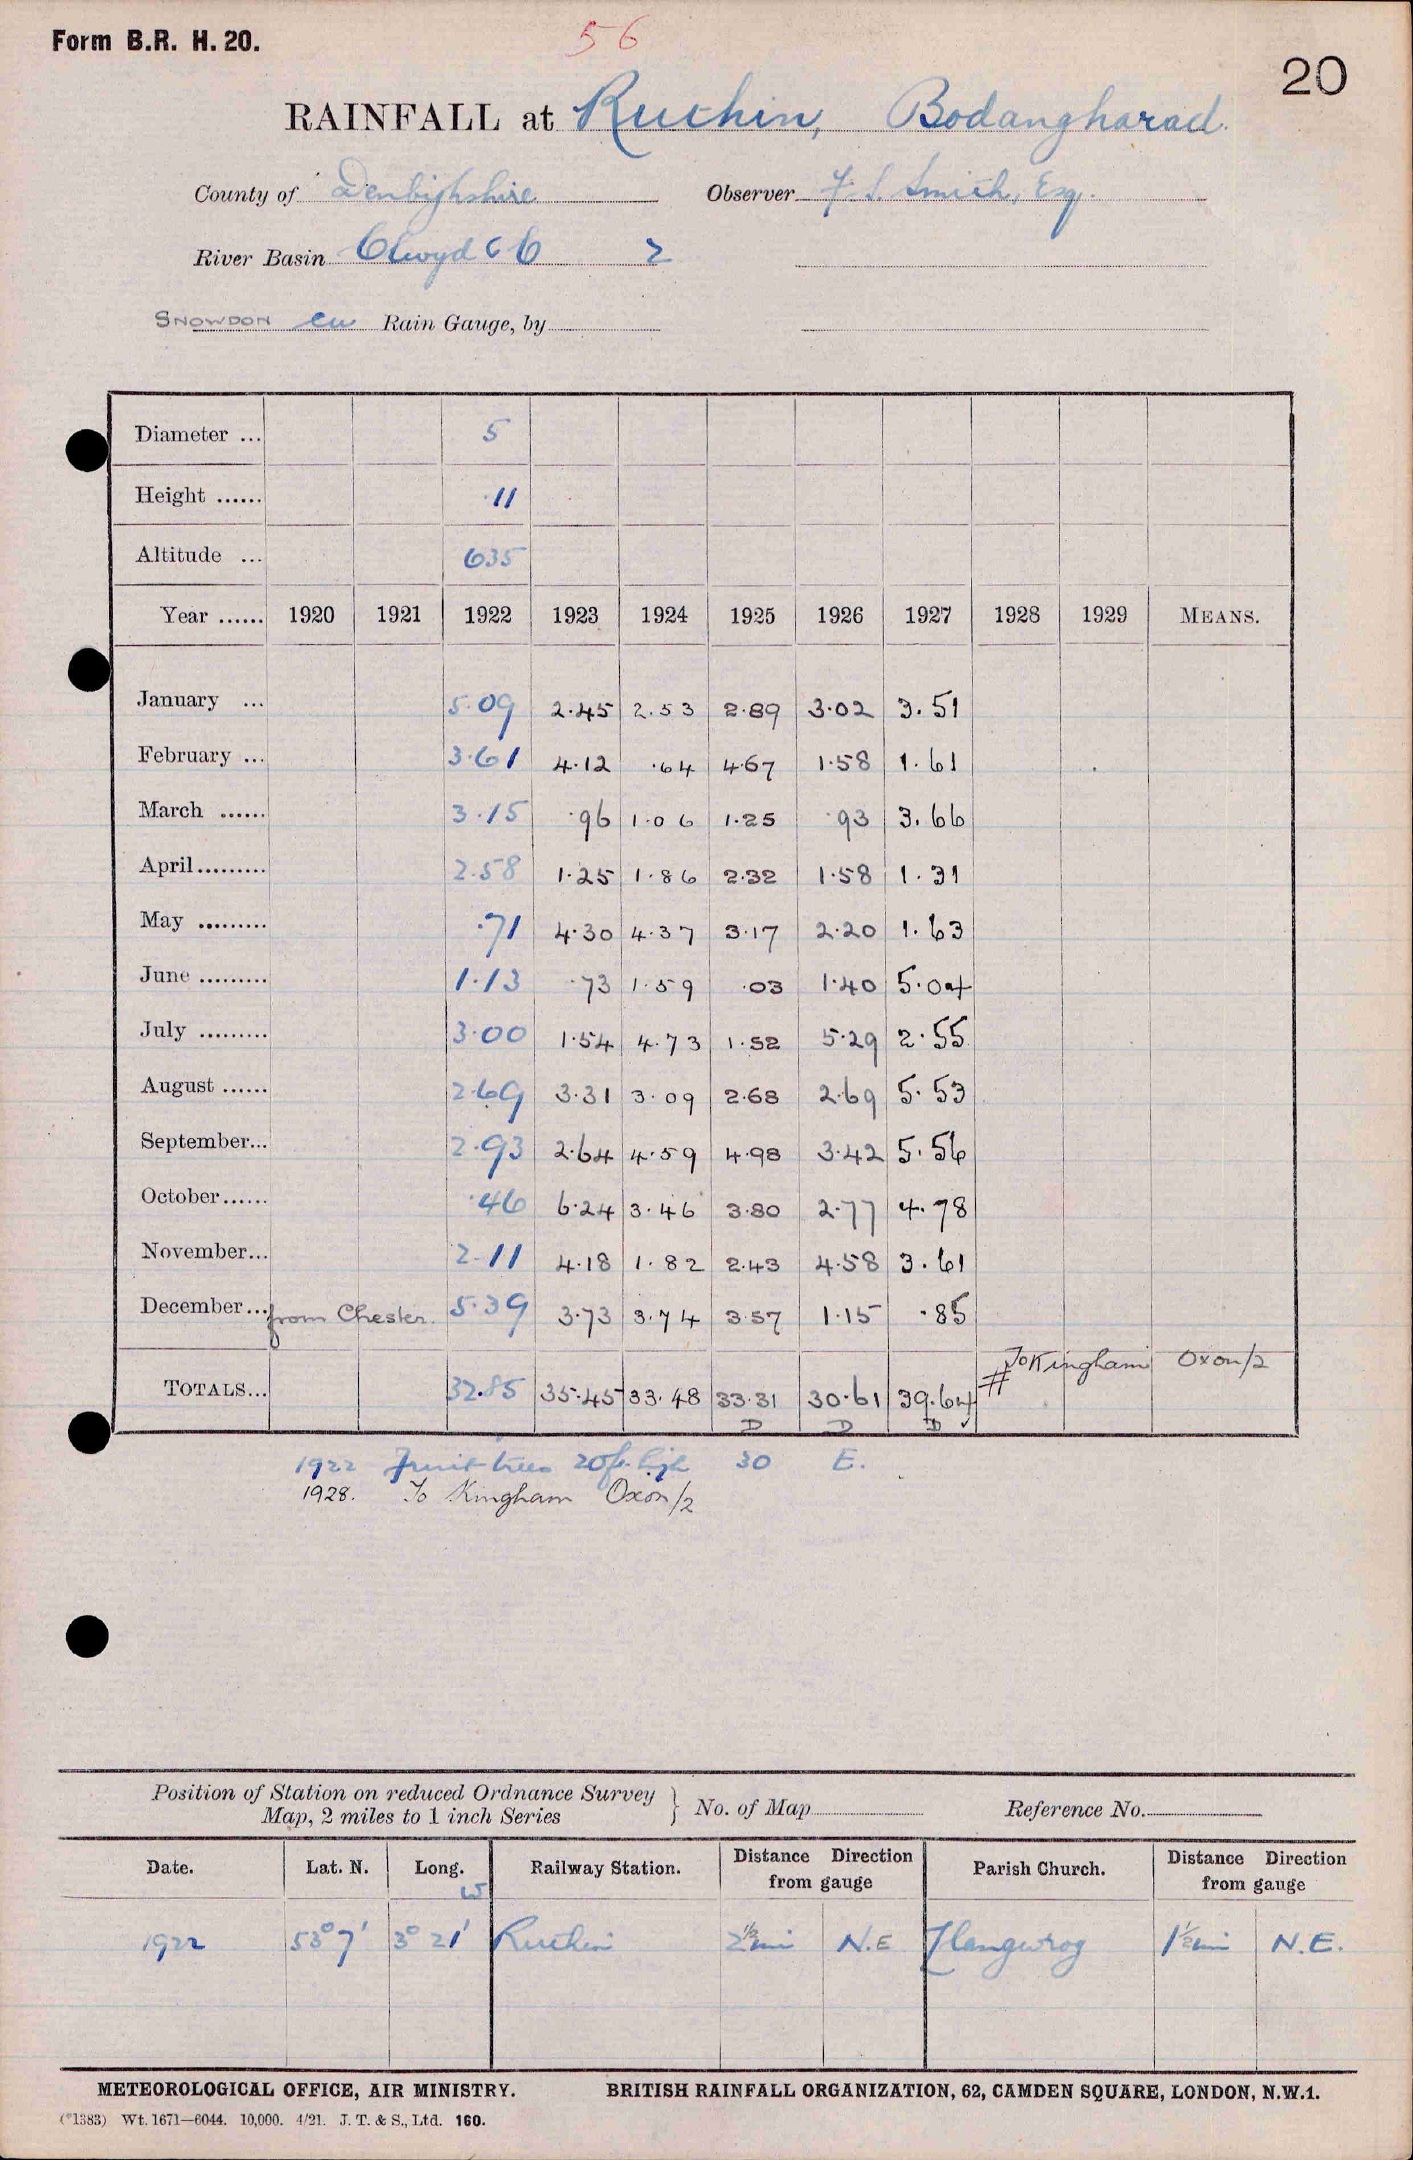 Form B.R. H. 20.
56
20
RAINFALL at Ruthin, Bodangharad.
County of Denbighshire Observer F. S. Smith, Esq.
River Basin Clwyd &C 2
SNOWDON Cu Rain Gauge, by
Diameter ... 5
Height ...... 11
Altitude ... 635
Year ...... 1920 1921 1922 1923 1924 1925 1926 1927 1928 1929 MEANS.
January ... 5.09 2.45 2.53 2.89 3.02 3.51
February ... 3.61 4.12 .64 4.67 1.58 1.61
March ...... 3.15 .96 1.06 1.25 .93 3.66
April......... 2.58 1.25 1.86 2.32 1.58 1.31
May ......... .71 4.30 4.37 3.17 2.20 1.63
June ......... 1.13 .73 1.59 .03 1.40 5.04
July ......... 3.00 1.54 4.73 1.52 5.29 2.55
August ...... 2.69 3.31 3.09 2.68 2.69 5.53
September... 2.93 2.64 4.59 4.98 3.42 5.56
October...... .46 6.24 3.46 3.80 2.77 4.78
November... 2.11 4.18 1.82 2.43 4.58 3.61
December... from Chester. 5.39 3.73 3.74 3.57 1.15 .85
To Kingham Oxon/2
TOTALS... 32.85 35.45 33.48 33.31 30.61 39.64 #
D D D ✓
1922 Fruit trees 20ft. high 30 E.
1928. To Kingham Oxon/2
Position of Station on reduced Ordnance Survey
Map, 2 miles to 1 inch Series } No. of Map Reference No.
Date. Lat. N. Long. W Railway Station. Distance Direction from gauge Parish Church. Distance Direction from gauge
1922 53° 7' 3° 21' Ruthin 2½ mi N.E Llangwrog 1½ mi N.E.
METEOROLOGICAL OFFICE, AIR MINISTRY. BRITISH RAINFALL ORGANIZATION, 62, CAMDEN SQUARE, LONDON, N.W.1.
(*1383) Wt. 1671—6044. 10,000. 4/21. J. T. & S., Ltd. 160.